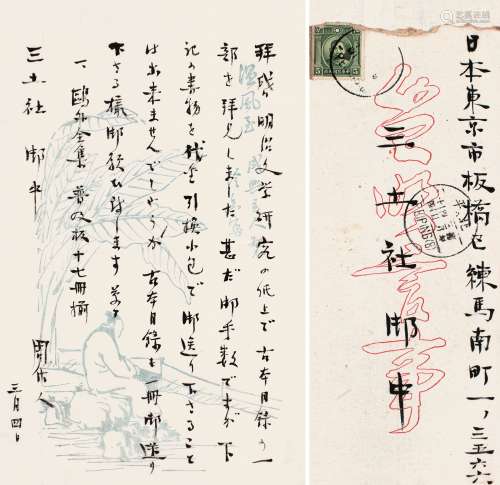 拝啓 明治文学研究の紙上で古本目録の一
部を拝見しました 甚だ御手数ですが 下
記の書物を代金引換小包で御送り下さること
は出来ませんでしょうか 古本目録も一冊御送り
下さる様御願ひ致します 草々
一、鷗外全集 普及板 十七冊揃
周作人
三月四日
三土社 御中
日本東京市板橋区練馬南町一ノ三五六六
三土社御中
PEIPING